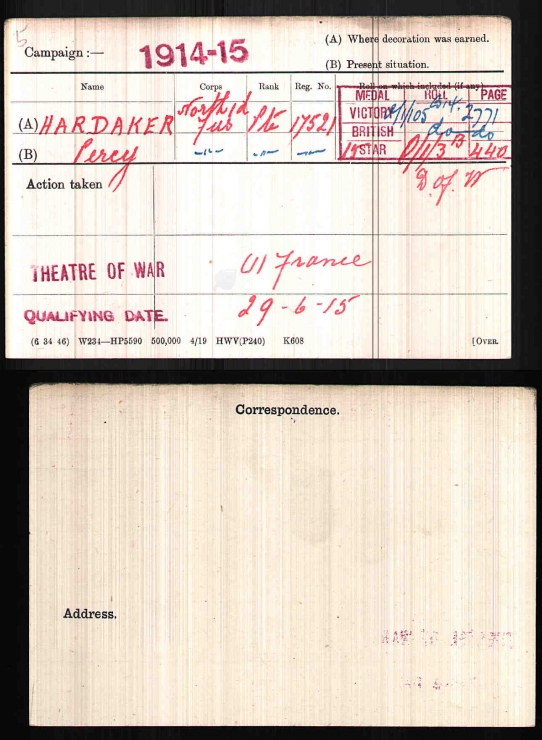 5
Campaign :— 1914-15
(A) Where decoration was earned.
(B) Present situation.
Name Corps Rank Reg. No. Roll on which included (if any)
MEDAL ROLL PAGE
(A) HARDAKER North'd Fus Pte 17521
VICTORY 2771
BRITISH do do
(B) Percy -"- -"- -"-
15 STAR 440
Action taken
D. of W
THEATRE OF WAR (1) France
QUALIFYING DATE. 29-6-15
(6 34 46) W234—HP5590 500,000 4/19 HWV(P240) K608 [OVER.
Correspondence.
Address.